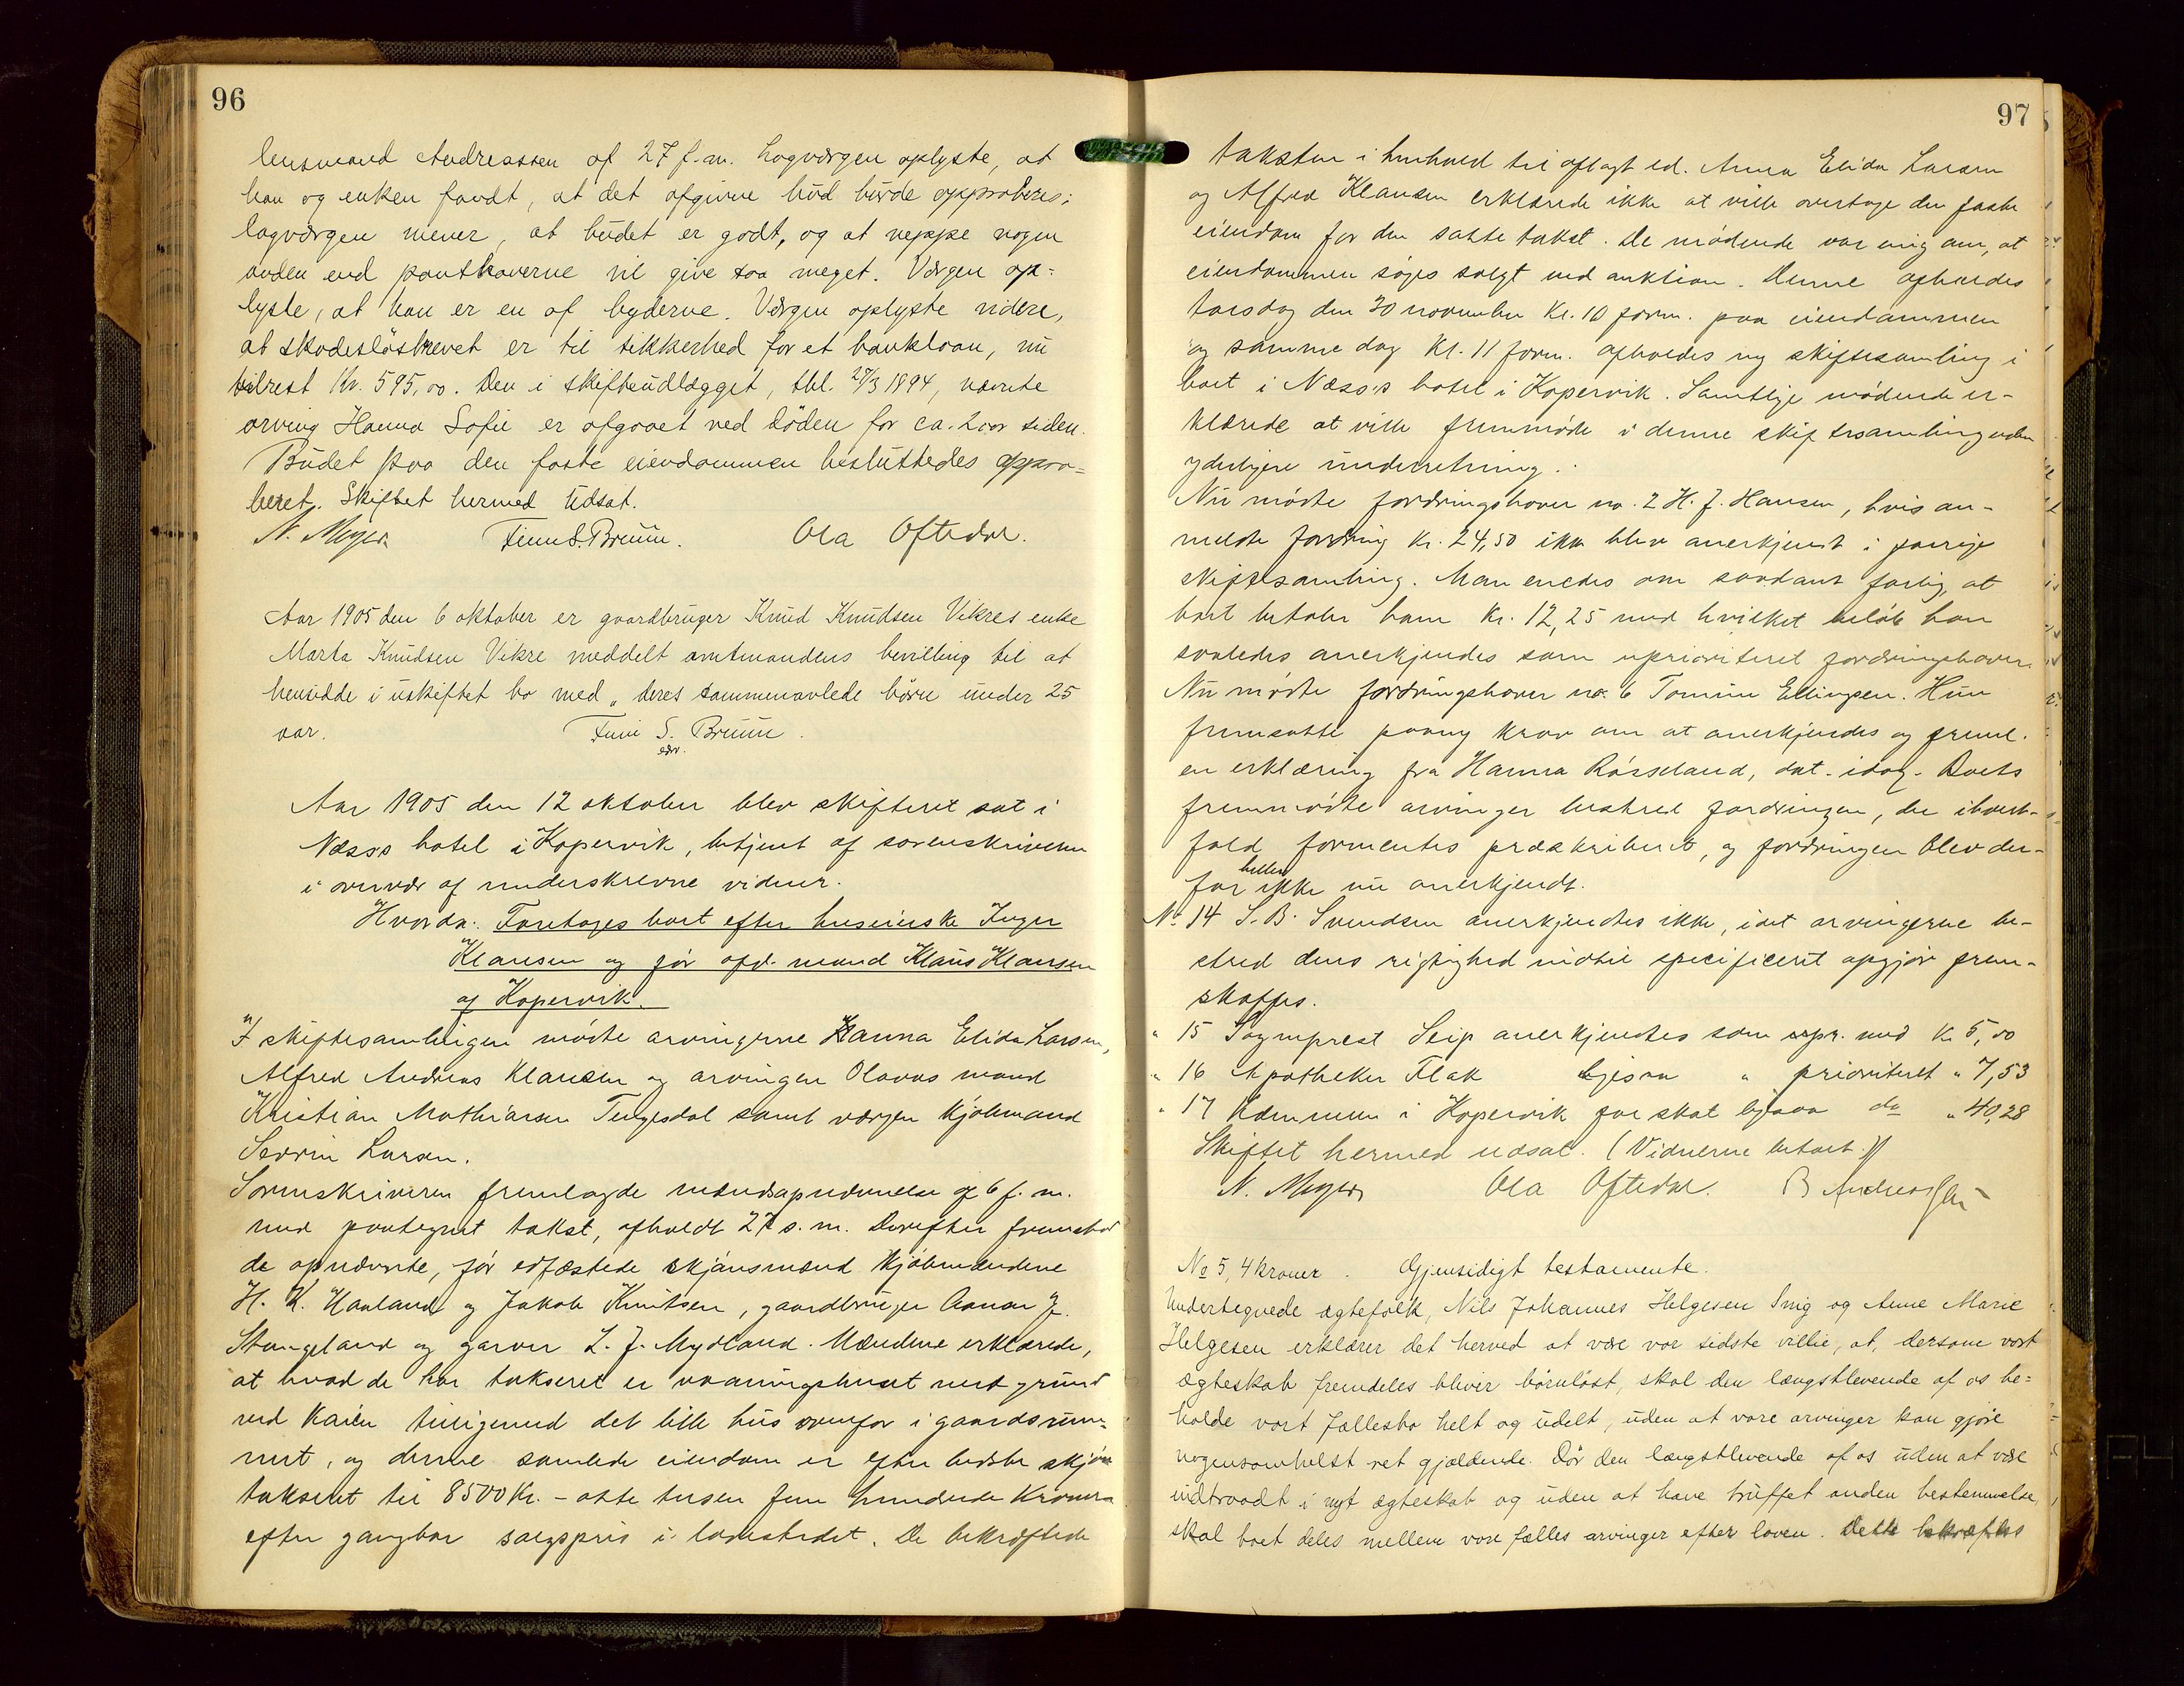 96
lensmand Andreassen af 27 f.m. Lagværgen oplyste, at
han og enken fandt, at det afgivne bud burde approberes;
lagværgen mener, at budet er godt, og at neppe nogen
anden end panthaverne vil give saa meget. Værgen op-
lyste, at han er en af byderne. Værgen oplyste videre,
at skadesløsbrevet er til sikkerhed for et banklaan, nu
tilrest Kr. 595,00. Den i skifteudlægget, thl. 27/3 1894, nævnte
arving Hanna Sofie er afgaaet ved døden for ca. 2 aar siden.
Budet paa den faste eiendommen besluttedes appro-
beret. Skiftet hermed udsat.
N. Meyer. Finn S. Bruun. Ola Oftedal.
Aar 1905 den 6 oktober er gaardbruger Knud Knudsen Vikres enke
Marta Knudsen Vikre meddelt amtmandens bevilling til at
hensidde i uskiftet bo med „ deres sammenavlede børn under 25
aar. Finn S. Bruun.
edv.
Aar 1905 den 12 oktober blev skifteret sat i
Næss's hotel i Kopervik, betjent af sorenskriveren
i overvær af underskrevne vidner.
Hvorda: Foretages boet efter huseierske Inger
Klausen og før afd. mand Klaus Klausen
af Kopervik.
I skiftesamlingen mødte arvingerne Hanna Elida Larsen,
Alfred Andreas Klausen og arvingen Olavas mand
Kristian Mathiasen Tengesdal samt værgen kjøbmand
Severin Larsen.
Sorenskriveren fremlagde mændsopnævnelse af 6 f.m.
med paategnet takst, afholdt 27 s.m. Derefter fremstod
de opnævnte, før edfæstede skjønsmænd kjøbmændene
H. K. Havland og Jakob Knutsen, gaardbruger Aanon J.
Stangeland og garver L. J. Mydland. Mændene erklærede,
at hvad de har takseret er vaaningshuset med grund
ved kaien tilligemed det lille hus ovenfor i gaardsrum-
met, og denne samlede eiendom er efter bedste skjøn
takseret til 8500 Kr. – otte tusen fem hundrede Kroner –
efter gangbar salgspris i ladestedet. De bekræftede
97
taksten i henhold til aflagt ed. Anna Elida Larsen
og Alfred Klausen erklærede ikke at ville overtage den faste
eiendom for den satte takst. De mødende var enig om, at
eiendommen søges solgt ved auktion. Denne afholdes
torsdag den 30 november kl. 10 form. paa eiendommen
og samme dag kl. 11 form. afholdes ny skiftesamling i
boet i Næss's hotel i Kopervik. Samtlige mødende er-
klærede at ville fremmøde i denne skiftesamling uden
yderligere underretning.
Nu mødte fordringshaver no. 2 H. J. Hansen, hvis an-
meldte fordring kr. 24,50 ikke blev anerkjendt i forrige
skiftesamling. Man enedes om saadant forlig, at
boet betaler ham kr. 12,25 med hvilket beløb han
saaledes anerkjendes som uprioriteret fordringshaver.
Nu mødte fordringshaver no. 6 Tomine Ellingsen. Hun
fremsatte paany krav om at anerkjendes og freml.
en erklæring fra Hanna Røsseland, dat. idag. Boets
fremmødte arvinger bestred fordringen, der ihvert-
fald formentes præskriberet, og fordringen blev der-
for heller ikke nu anerkjendt.
No 14 S. B. Svendsen anerkjendtes ikke, idet arvingerne be-
stred dens rigtighed indtil specificeret opgjør frem-
skaffes.
" 15 Sogneprest Seip anerkjendtes som upr. med K. 5,00
" 16 Apotheker Flak ligesaa " prioriteret " 7,53
" 17 Kæmneren i Kopervik for skat ligesaa do " 40,28
Skiftet hermed udsat. (Vidnerne betalt.)
N. Meyer Ola Oftedal. B Andreassen
No 5, 4 kroner. Gjensidigt testamente.
Undertegnede ægtefolk, Nils Johannes Helgesen Snig og Anne Marie
Helgesen erklærer det herved at være vor sidste villie, at, dersom vort
ægteskab fremdeles bliver børnløst, skal den længstlevende af os be-
holde vort fællesbo helt og udelt, uden at vore arvinger kan gjøre
nogensomhelst ret gjældende. Dør den længstlevende af os uden at være
indtraadt i nyt ægteskab og uden at have truffet anden bestemmelse,
skal boet deles mellem vore fælles arvinger efter loven. Dette bekræftes